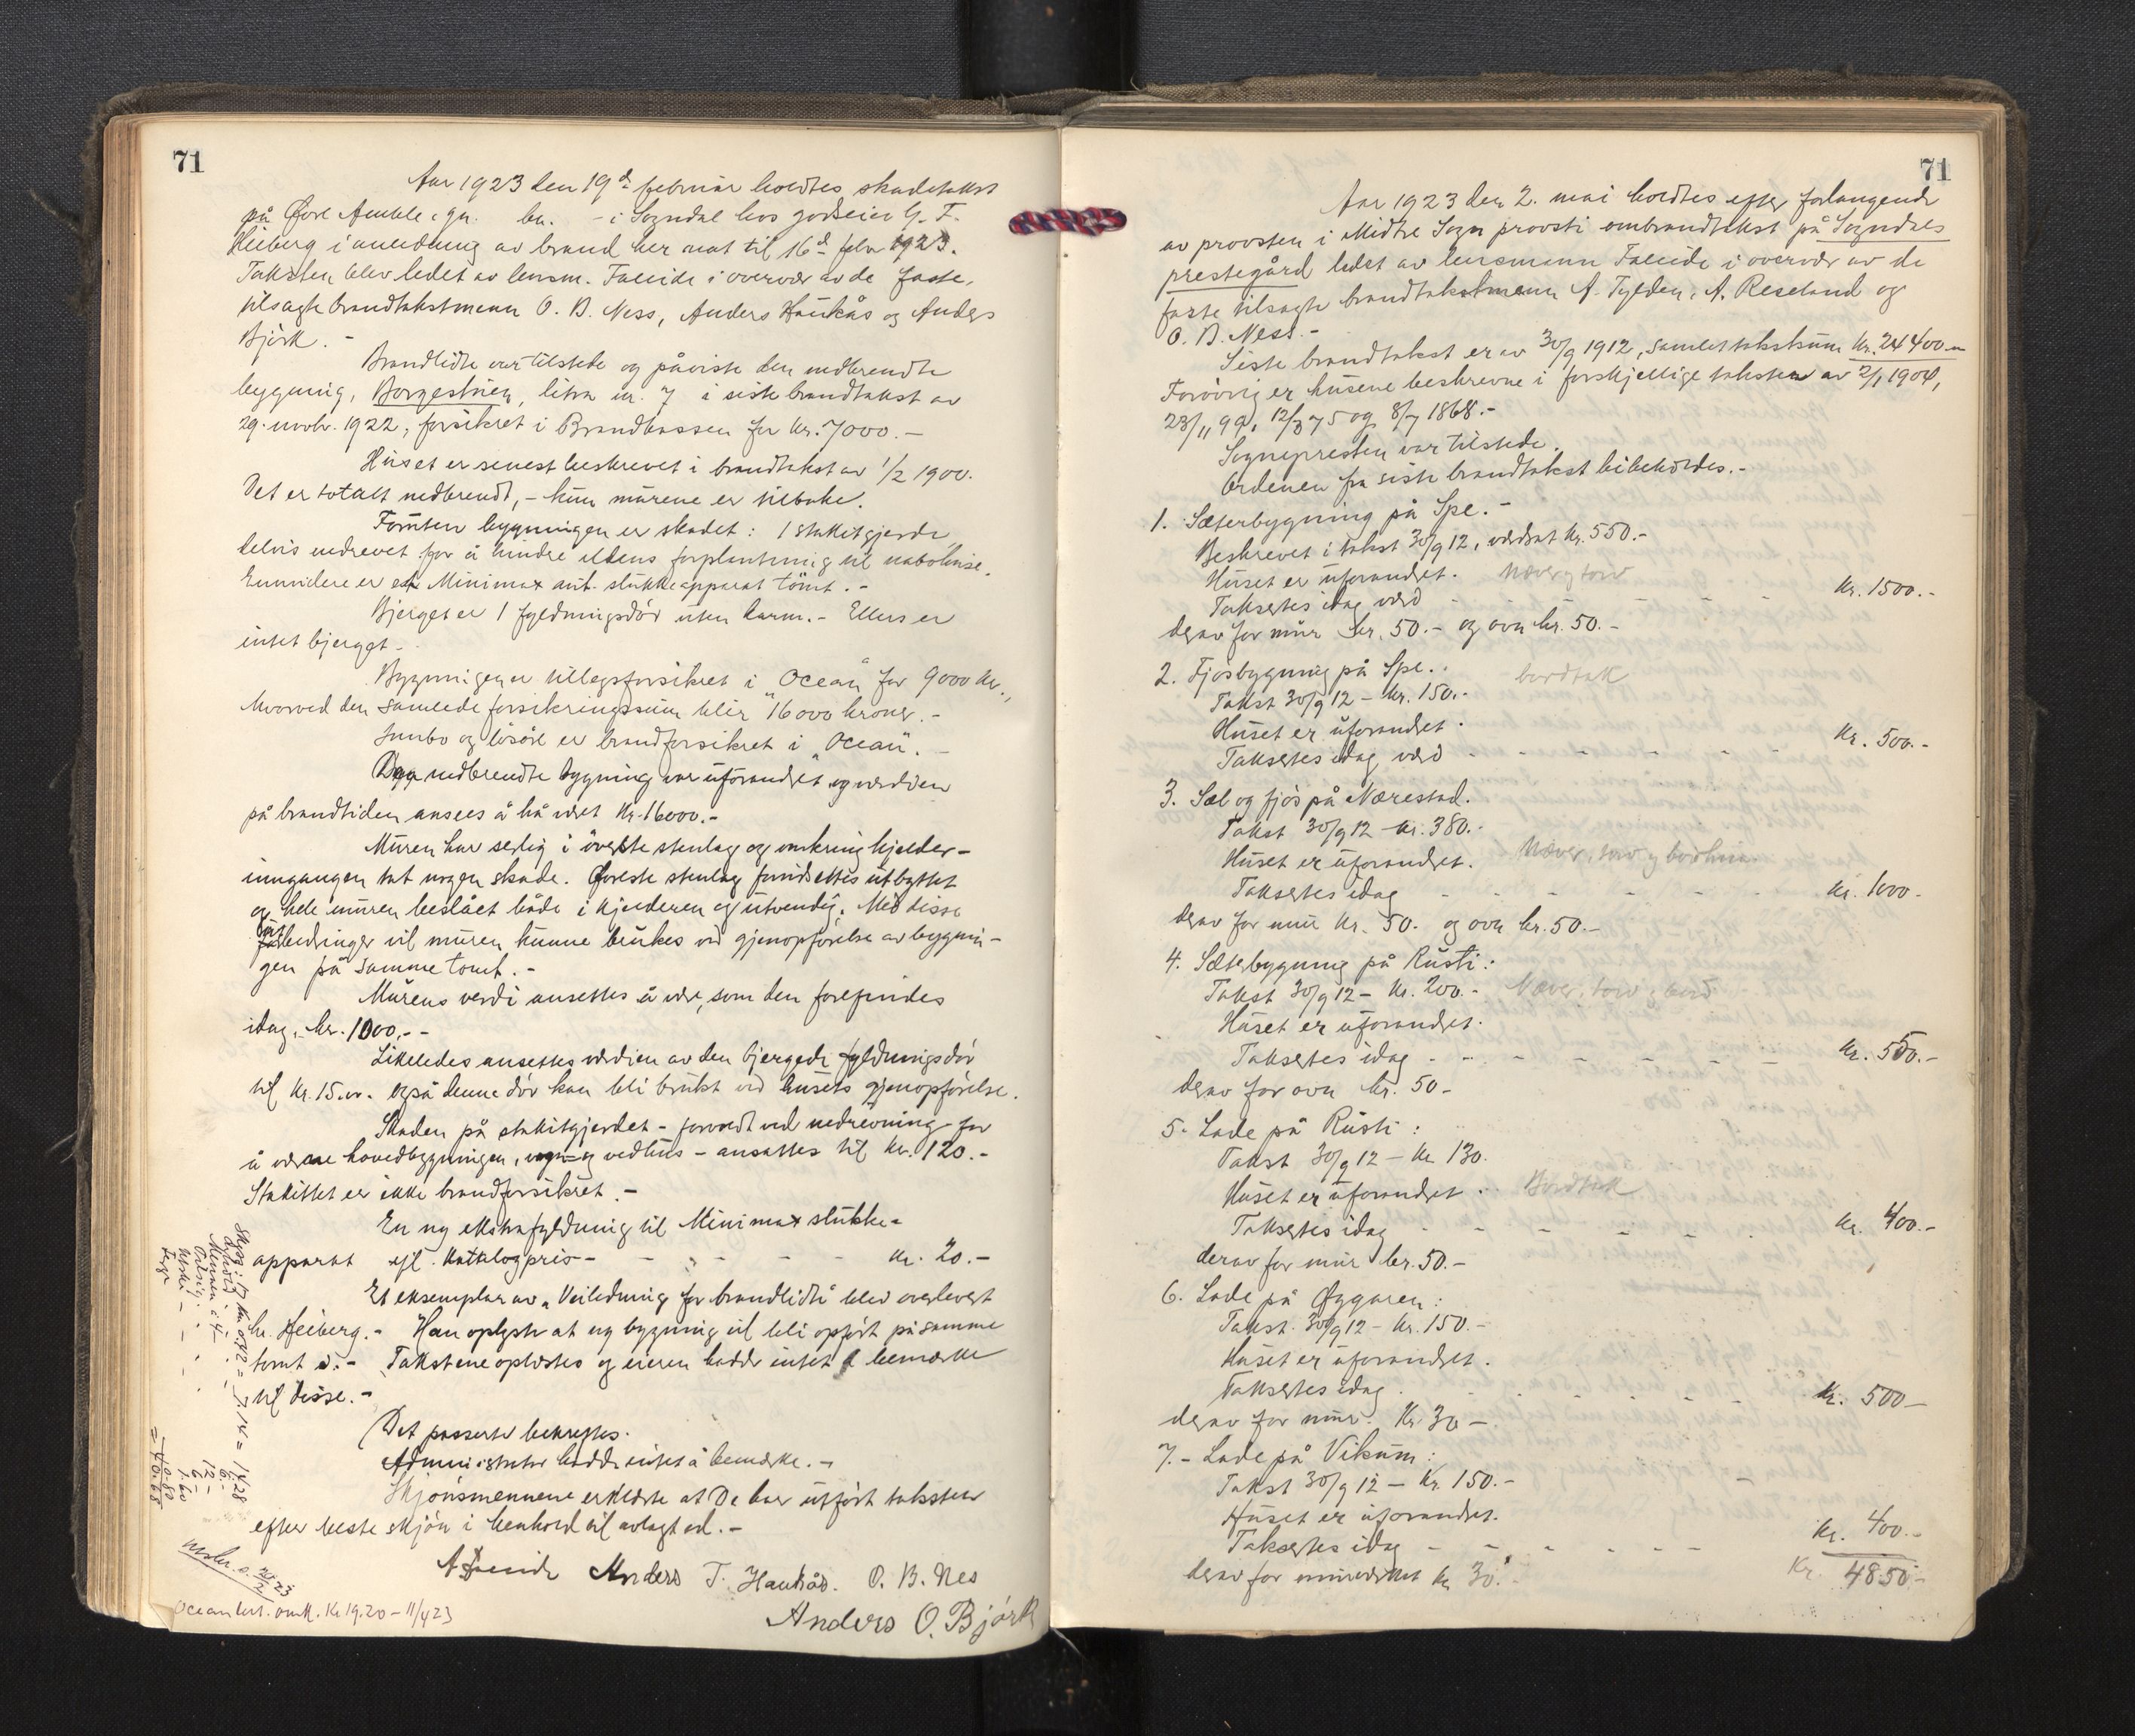 71
Aar 1923 den 19d. februar holdtes skadetakst
på Øvre Amble, gn. bn. - i Sogndal hos godseier G. F.
Heiberg i anledning av brand her nat til 16d. febr 1923.
Taksten blev ledet av lensm. Faleide i overvær av de faste,
tilsagte brandtakstmenn O. B. Ness, Anders Haukås og Anders
Bjørk. -
Brandlidte var tilstede og påviste den nedbrendte
bygning, Borgestuen, litra nr. 7 i siste brandtakst av
29. novbr. 1922, forsikret i Brandkassen for kr. 7000.-
Huset er senest beskrevet i brandtakst av 1/2 1900.
Det er totalt nedbrendt, - kun murene er tilbake.
Foruten bygningen er skadet: 1 stakitgjerde
delvis nedrevet for å hindre ildens forplantning til nabohuse.
Ennvidere er et Minimax aut. slukkeapparat tömt. -
Bjerget er 1 fyldningsdör uten karm. - Ellers er
intet bjerget. -
Bygningen er tillegsforsikret i "Ocean" for 9000 kr.,
hvorved den samlede forsikringssum blir 16000 kroner. -
Innbo og lösöre er brandforsikret i "Ocean". -
Den nedbrendte bygning var uforandret og verdien
på brandtiden ansees å ha været kr. 16000.-
Muren har serlig i överste stenlag og omkring kjelder-
inngangen tat nogen skade. Øverste stenlag forutsettes utbyttet
og hele muren beslået både i kjelderen og utvendig. Med disse
utbedringer vil muren kunne brukes ved gjenopförelse av bygnin-
gen på samme tomt. -
Murens verdi ansettes å være, som den forefindes
idag, kr. 1000.--
Likeledes ansettes verdien av den bjergede fyldningsdör
til kr. 15.00. Også denne dör kan bli brukt ved husets gjenopförelse.
Skaden på stakitgjerdet - forvoldt ved nedrivning for
å verne hovedbygningen, vogn- og vedhus - ansettes til kr. 120.-
Stakittet er ikke brandforsikret. -
En ny ekstrafyldning til Minimax slukke-
apparat efl. katalogpris - - - - - kr. 20.-
Et eksemplar av "Veiledning for brandlidte" blev overlevert
hr. Heiberg. - Han oplyste at ny bygning vil bli opfört på samme
tomt. - Takstene oplæstes og eieren hadde intet å bemærke
til disse. -
Det passerte bekreftes.
Administrator hadde intet å bemærke. -
Skjönsmennene erklærte at De har utfört taksten
efter beste skjön i henhold til avlagt ed. -
A Faleide Anders T. Haukås. O. B. Nes
Anders O. Bjørk
Ocean bet. omk. Kr 19.20 - 11/4 23
71
Aar 1923 den 2. mai holdtes efter forlangende
av provsten i Midtre Sogn provsti ombrandtakst på Sogndals
prestegård ledet av lensmann Faleide i overvær av de
faste tilsagte brandtakstmenn A. Tylden, A. Reseland og
O. B. Ness. -
Siste brandtakst er av 30/9 1912, samlet takstsum kr. 24400.-
Forövrig er husene beskrevne i forskjellige takster av 2/1 1904,
28/11 99, 12/3 75 og 8/7 1868. -
Sognepresten var tilstede.
Ordenen fra siste brandtakst bibeholdes. -
1. Sæterbygning på Spe. -
Beskrevet i takst 30/9 12, værdsat kr. 550.-
Huset er uforandret. Næver og torv
Takseres idag værd - - - - kr. 1500.-
derav for mur kr. 50.- og ovn kr. 50.-
2. Fjösbygning på Spe. bordtak
Takst 30/9 12 - kr. 150.-
Huset er uforandret.
Takseres idag værd - - - - kr. 500.-
3. Sel og fjös på Nærestad.
Takst 30/9 12 - kr. 380.-
Huset er uforandret. Næver, torv og
Takseres idag - - - - kr. 1000.
derav for mur kr. 50. og ovn kr. 50.-
4. Sæterbygning på Rusti:
Takst 30/9 12 - kr. 200.- Næver, torv og bord
Huset er uforandret.
Takseres idag - - - - kr. 550.-
derav for ovn kr. 50-
5. Lade på Rusti:
Takst 30/9 12 - kr 130.
Huset er uforandret. Bordtak
Takseres idag - - - - kr. 400.-
derav for mur kr. 50.-
6. Lade på Øygaren:
Takst. 30/9 12 - kr. 150.-
Huset er uforandret.
Takseres idag - - - - kr. 500-
derav for mur. kr 30-
7. - Lade på Vikum:
Takst 30/9 12 - kr. 150.-
Huset er uforandret.
Takseres idag - - - - kr. 400.-
derav for murverket kr 30.- kr. 4850-